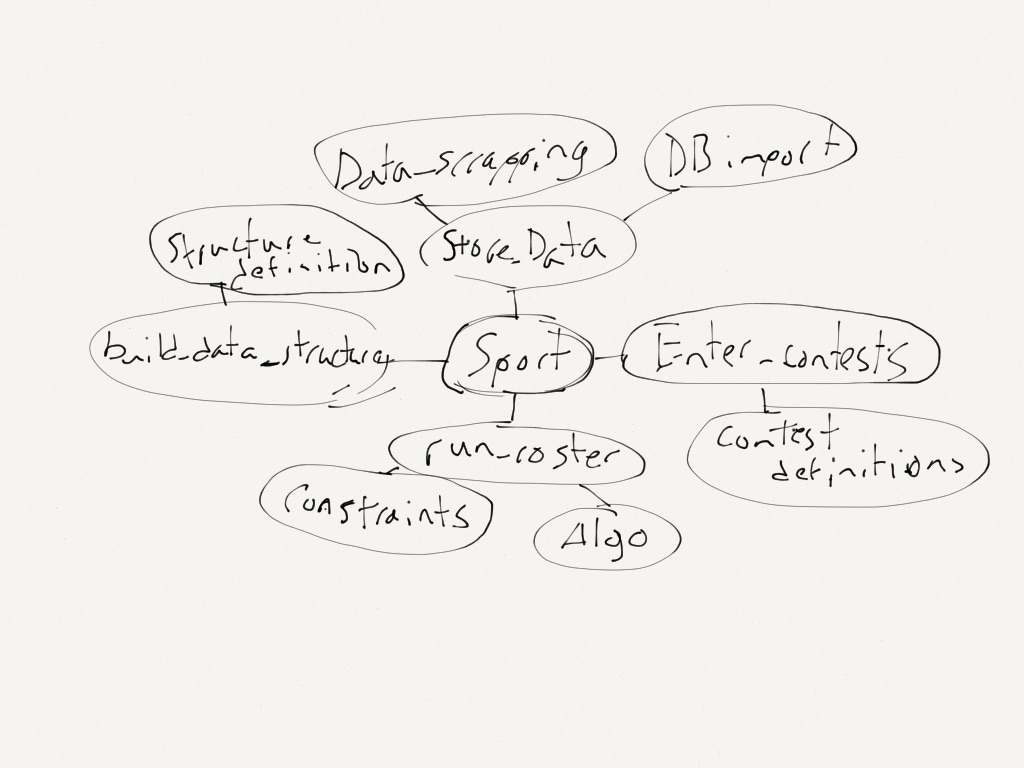 Data_scrapping
DB import
structure
definition
Store_Data
build_data_structure
Sport
Enter_contests
run_roster
contest
definitions
constraints
Algo